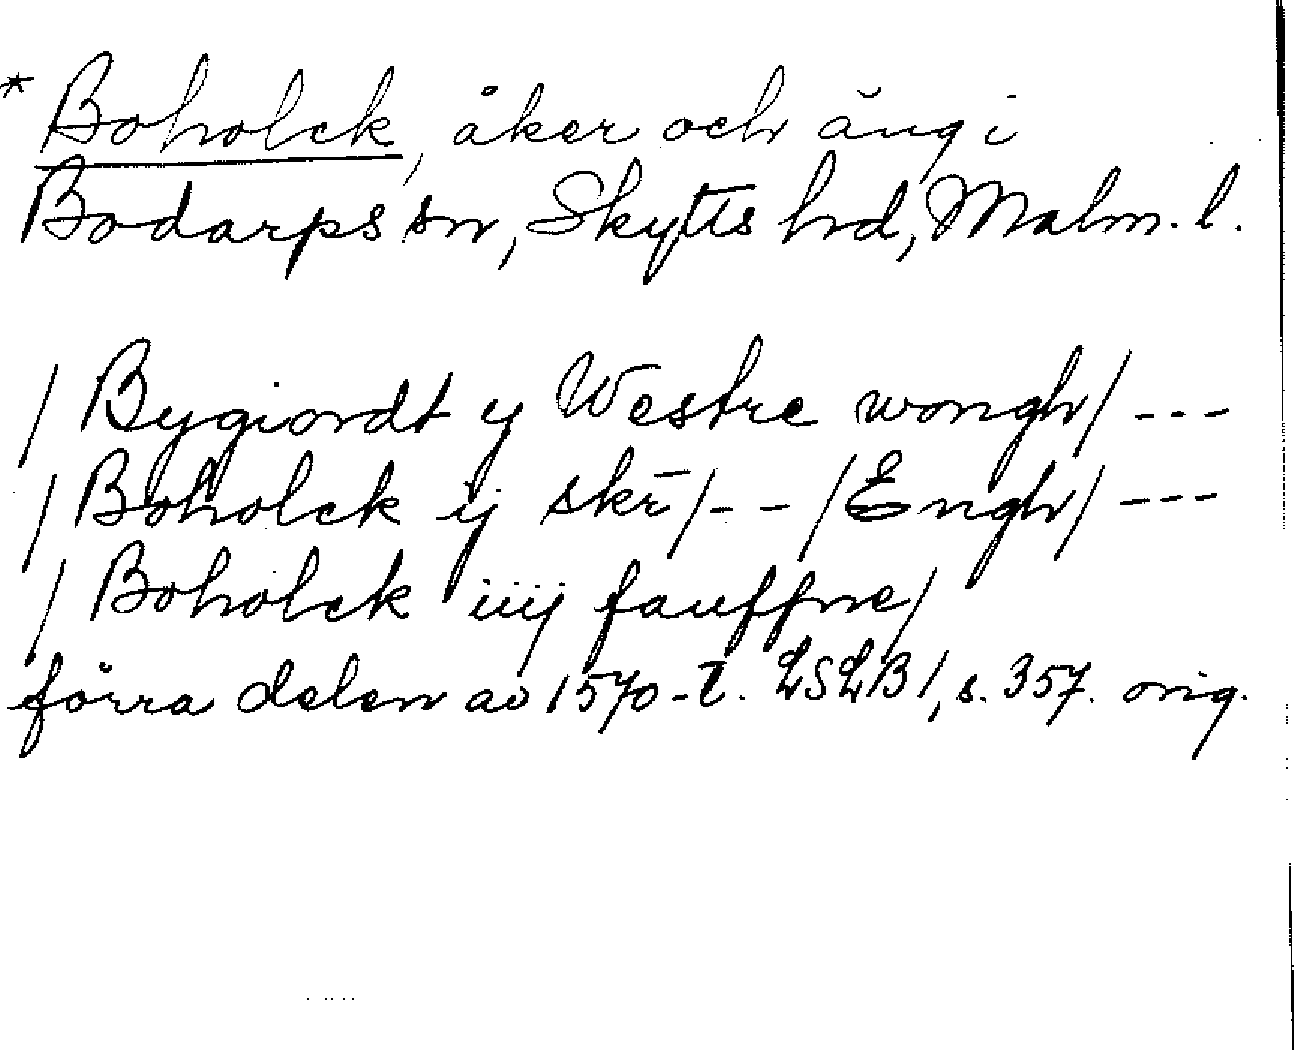 * Boholck, åker och äng i
Bodarps sn, Skytts hd, Malm. l.
/ Bygiordt y Westre wongh / ---
/ Boholck ij skr̄ / -- / Engh / ---
/ Boholck iiij fauffne /
förra delen av 1570-t. LSLB 1, s. 357. orig.